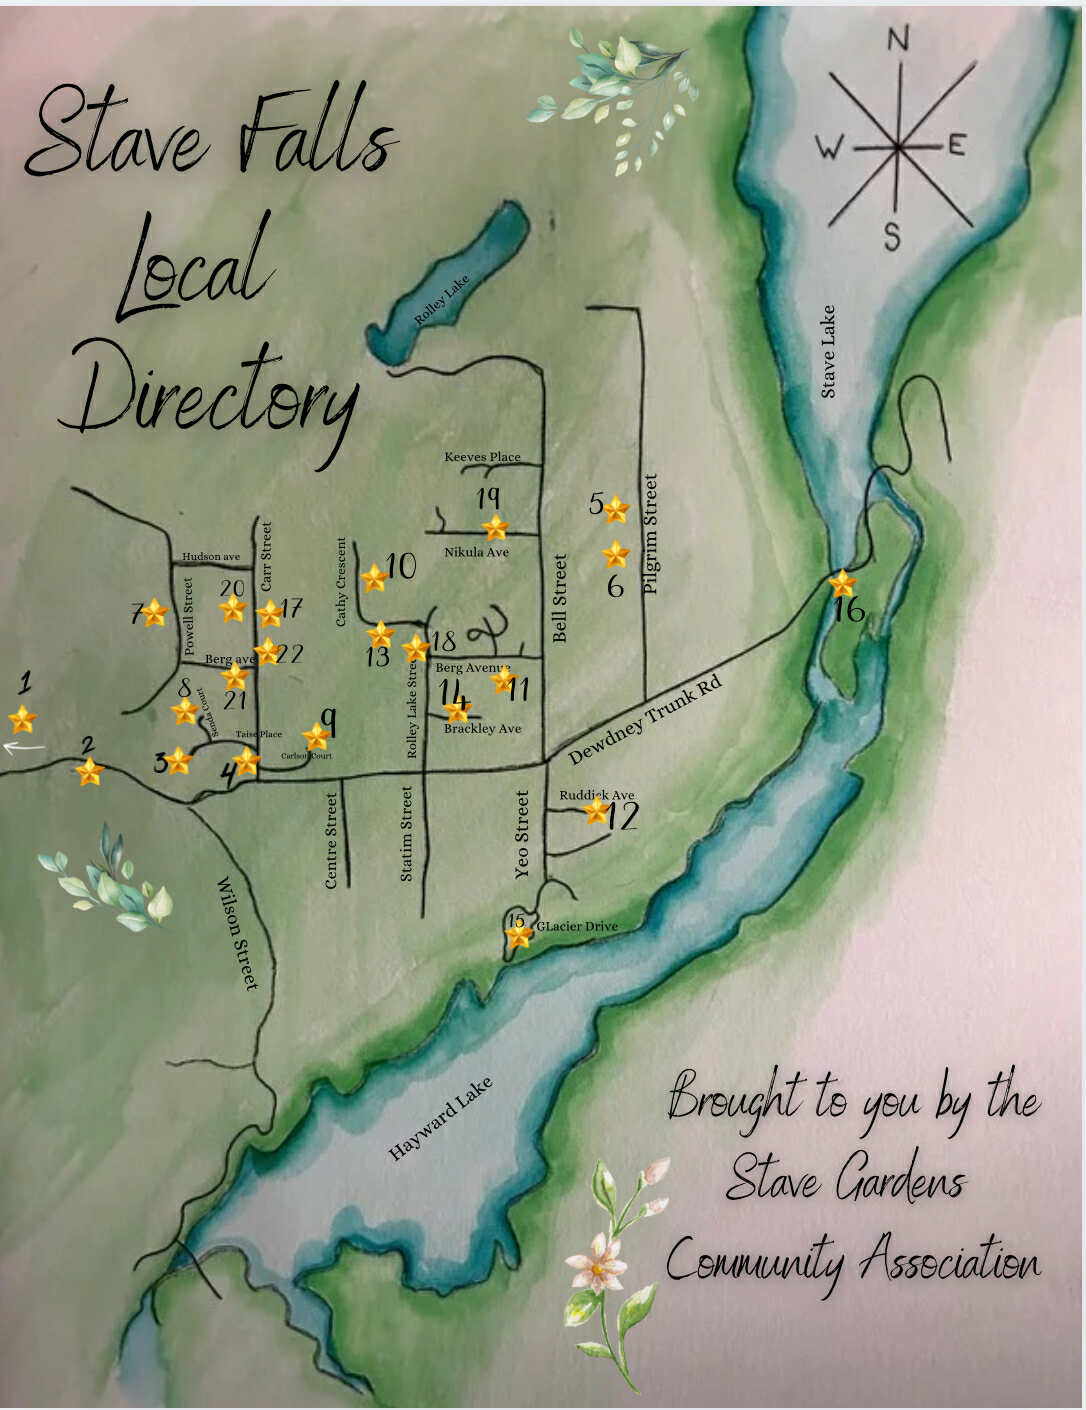 Stave Falls
Local
Directory
N
W E
S
Rolley Lake
Stave Lake
Keeves Place
19
Nikula Ave
5
6
Pilgrim Street
Bell Street
Hudson ave
Carr Street
Cathy Crescent
10
20
17
7
Powell Street
16
13
18
22
Berg ave
Berg Avenue
1
8
21
Senda Court
14
11
Rolley Lake Street
Brackley Ave
Dewdney Trunk Rd
2
9
Taise Place
Carlson Court
3
4
Ruddick Ave
12
Centre Street
Statim Street
Yeo Street
Wilson Street
15
GLacier Drive
Hayward Lake
Brought to you by the
Stave Gardens
Community Association